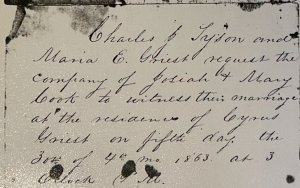 Charles J Tyson and
Maria E. Griest request the
company of Josiah & Mary
Cook to witness their marriage
at the residence of Cyrus
Griest on fifth day the
30th of 4th mo 1863. at 3
Oclock P.M.